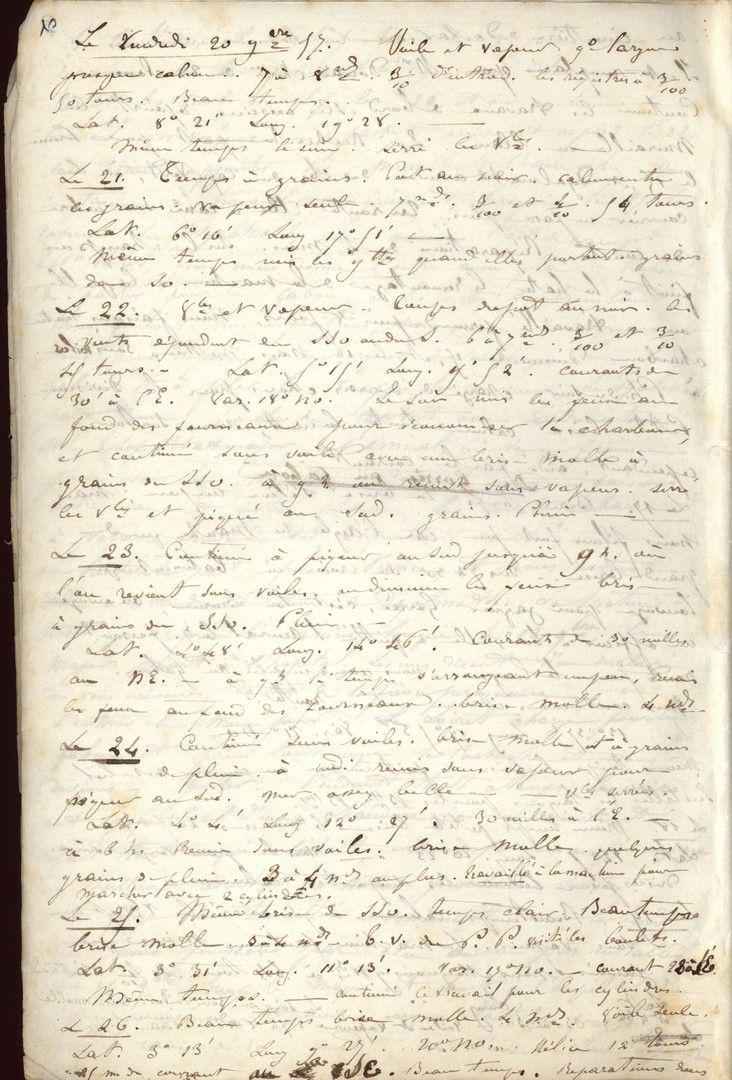 Le Vendredi 20 9bre 57. Voile et vapeur go largue
presque calme. 7 à 8 nds. 3/10 d'introd. les registres à 3/100
50 tours. Beau temps.
Lat. 8° 21' Long. 19° 28. —
Même temps le soir. Serré les vles.
Le 21. Temps à grains. Pot au noir. calme entre
les grains. vapeur seule. 7 nds. 3/100 et 3/10. 54 tours.
Lat. 6° 16' Long 17° 51' —
Même temps mis les gttes quand elles portent. grains
du So. —
Le 22. vles et vapeur. temps de pot au noir. les
vents dépendent du SSO au du S. 6 à 7 nds. 3/100 et 3/10
45 tours. — Lat. 5° 15' Long. 52'. courants de
30' à l'E. Var. 18° no. Le soir mis les feux au
fond des fourneaux pour économiser le charbon,
et continué sous voile avec une brise molle à
grains du SSO. à 9 h on revient sous vapeur. serré
les vles et piqué au Sud. grains. Pluie —
Le 23. Continué à piquer au Sud jusqu'à 9 h. où
l'on revient sous voiles. on diminue les feux brise
à grains du SSO. Pluie —
Lat. 4° 48' Long. 14° 46'. Courants de 30 milles
au NE. — à 9 h le temps s'arrangeant un peu, remis
les feux au fond des fourneaux. brise molle. 4 nds
Le 24. Continué sous voiles. brise molle et à grains
de pluie. à midi remis sous vapeur pour
piquer au Sud. mer assez belle — vles serrées.
Lat. 4° 4' Long 12° 27'. 30 milles à l'E. —
à 6 hs Remis sous voiles. brise molle. quelques
grains de pluie. 3 à 4 nds au plus. travaillé à la machine pour
marcher avec 2 cylindres.
Le 25. Même brise du SSO. temps clair. Beau temps
brise molle. 3 à 4 nds b. v. du P. P. visité les boulets.
Lat. 3° 31' Long. 11° 13'. Var. 19° no. — courant 28 à l'E.
Même temps. — continué le travail pour les cylindres.
Le 26. Beau temps. brise molle. 4 nds. Voile seule.
Lat. 3° 13' Long 9° 25'. 20° no. Hélice 12 tours
25 m. de courant au ESE. Beau temps. Réparations dans